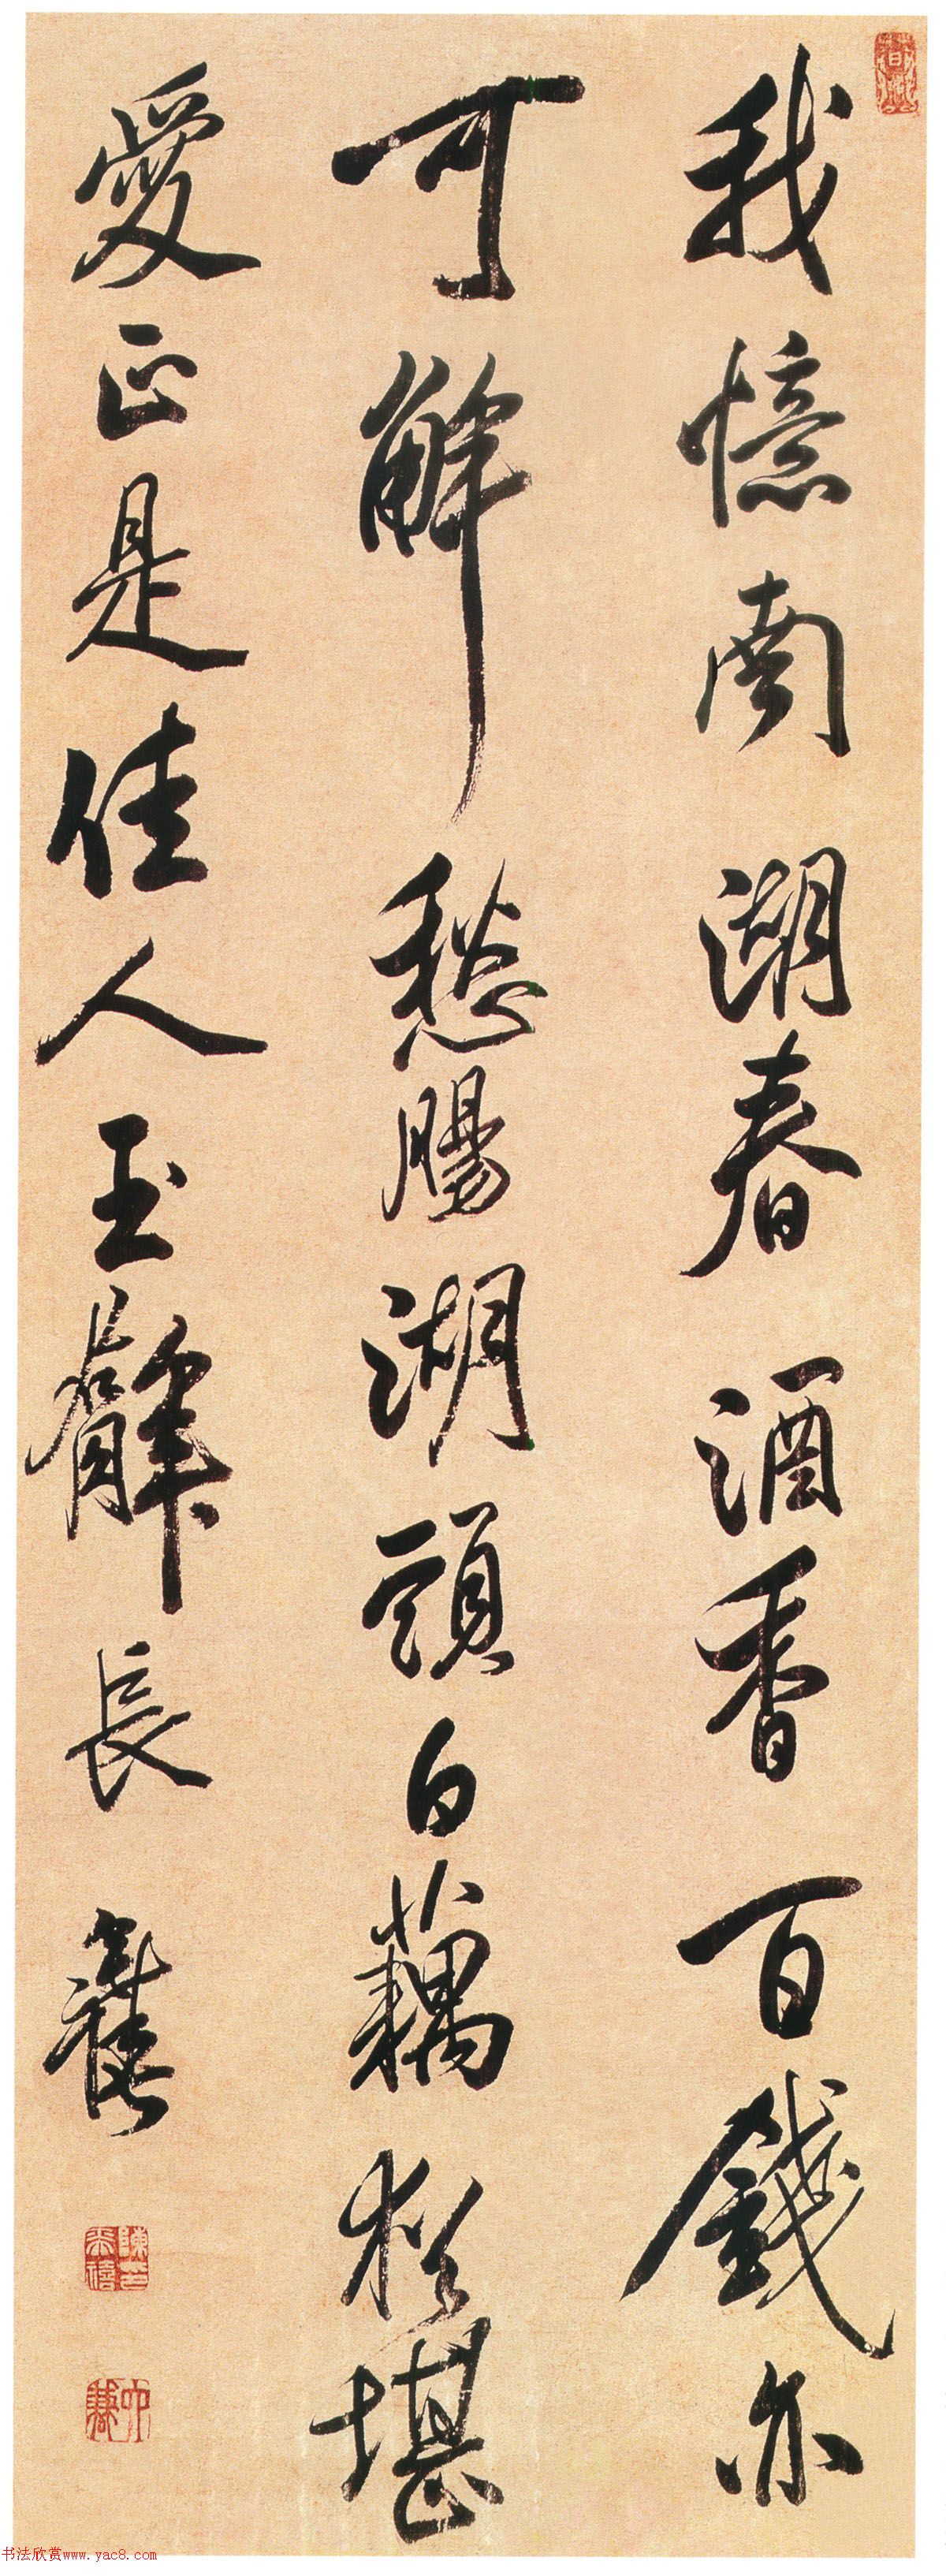 我憶南湖春酒香百錢亦
可解愁腸湖頭白藕於堪
愛正是佳人玉臂長
陳奕禧印
书法欣赏www.yac8.com